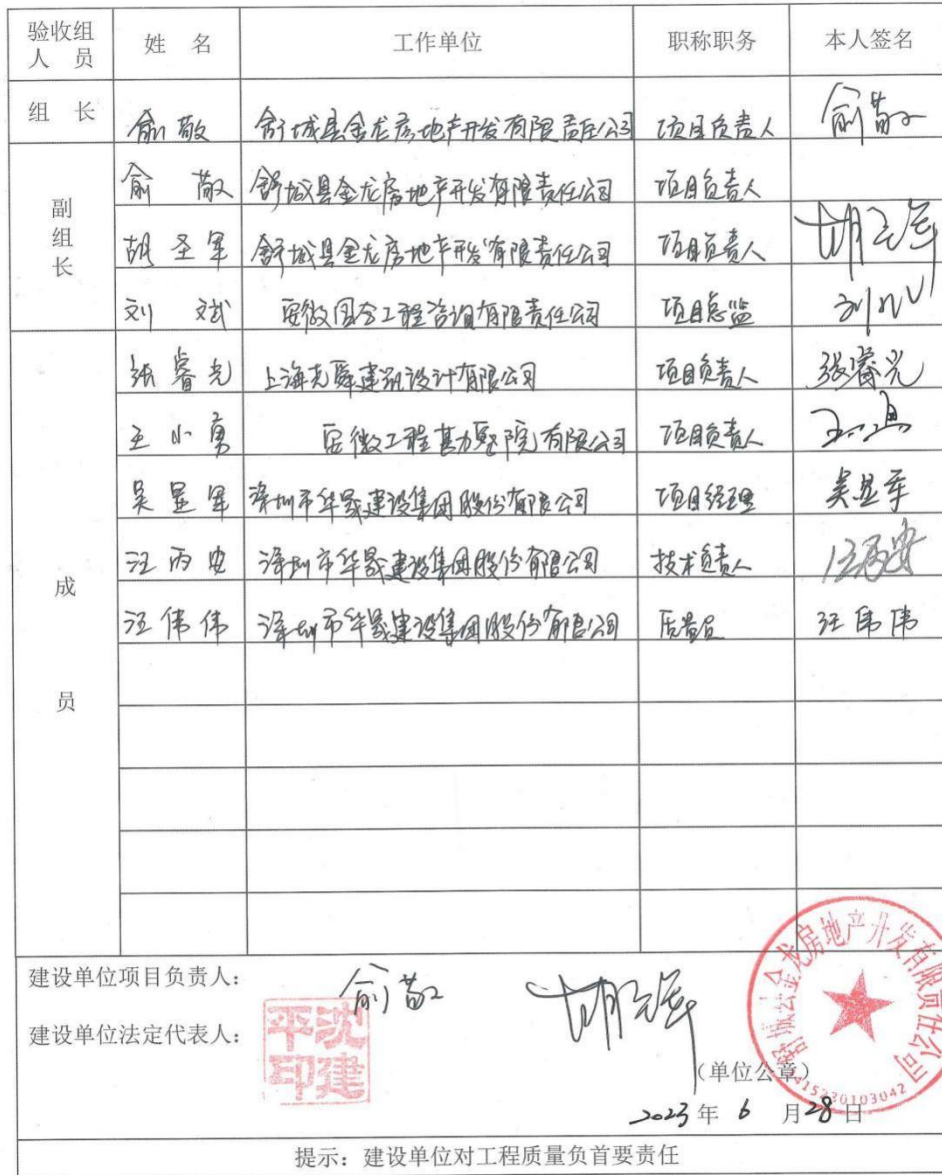 验收组人员 姓 名 工作单位 职称职务 本人签名
组 长 俞敬 舒城县金龙房地产开发有限责任公司 项目负责人 俞敬
副组长 俞敬 舒城县金龙房地产开发有限责任公司 项目负责人
胡圣军 舒城县金龙房地产开发有限责任公司 项目负责人 胡圣军
刘斌 安徽国合工程咨询有限责任公司 项目总监 刘斌
成员 张睿光 上海尧舜建筑设计有限公司 项目负责人 张睿光
王小勇 安徽工程勘察院有限公司 项目负责人
吴显军 深圳市华晟建设集团股份有限公司 项目经理 吴显军
汪丙安 深圳市华晟建设集团股份有限公司 技术负责人 汪丙安
汪伟伟 深圳市华晟建设集团股份有限公司 质量员 汪伟伟
建设单位项目负责人: 俞敬 胡圣军
建设单位法定代表人: 沈建平印
(单位公章)
金龙房地产开发有限责任公司
2023年 6 月28日
提示:建设单位对工程质量负首要责任